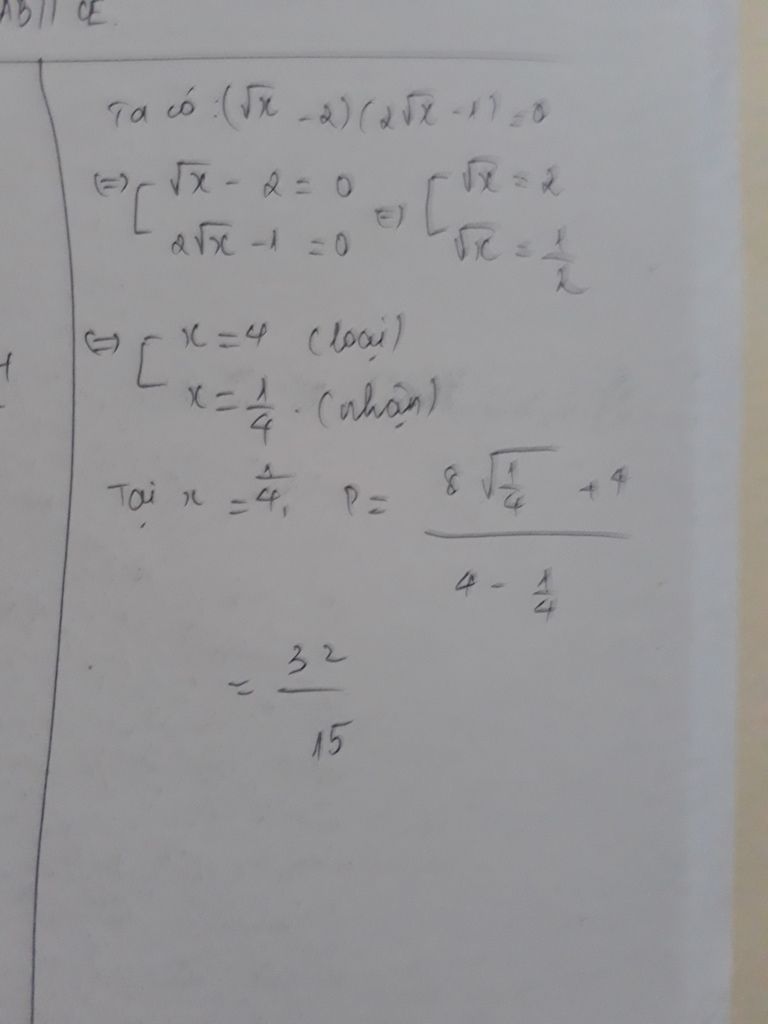 AB // CE.
Ta có: (√x - 2)(2√x - 1) = 0
⇔ [ √x - 2 = 0
2√x - 1 = 0
⇔ [ √x = 2
√x = 1/2
⇔ [ x = 4 (loại)
x = 1/4 . (nhận)
Tại x = 1/4, P = (8√(1/4) + 4)/(4 - 1/4)
= 32/15